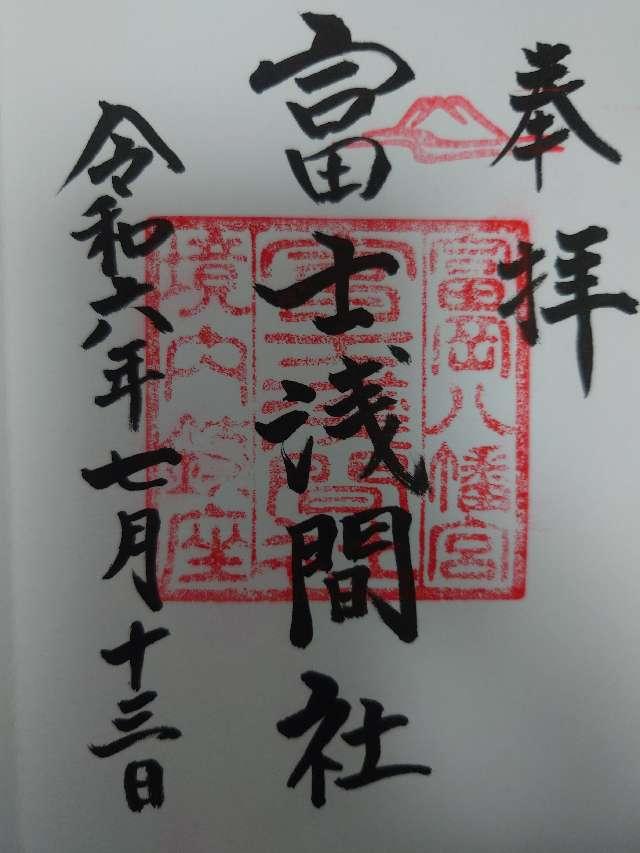 奉拝
富士浅間社
令和六年七月十三日
富岡八幡宮
富士浅間社
境内鎮座